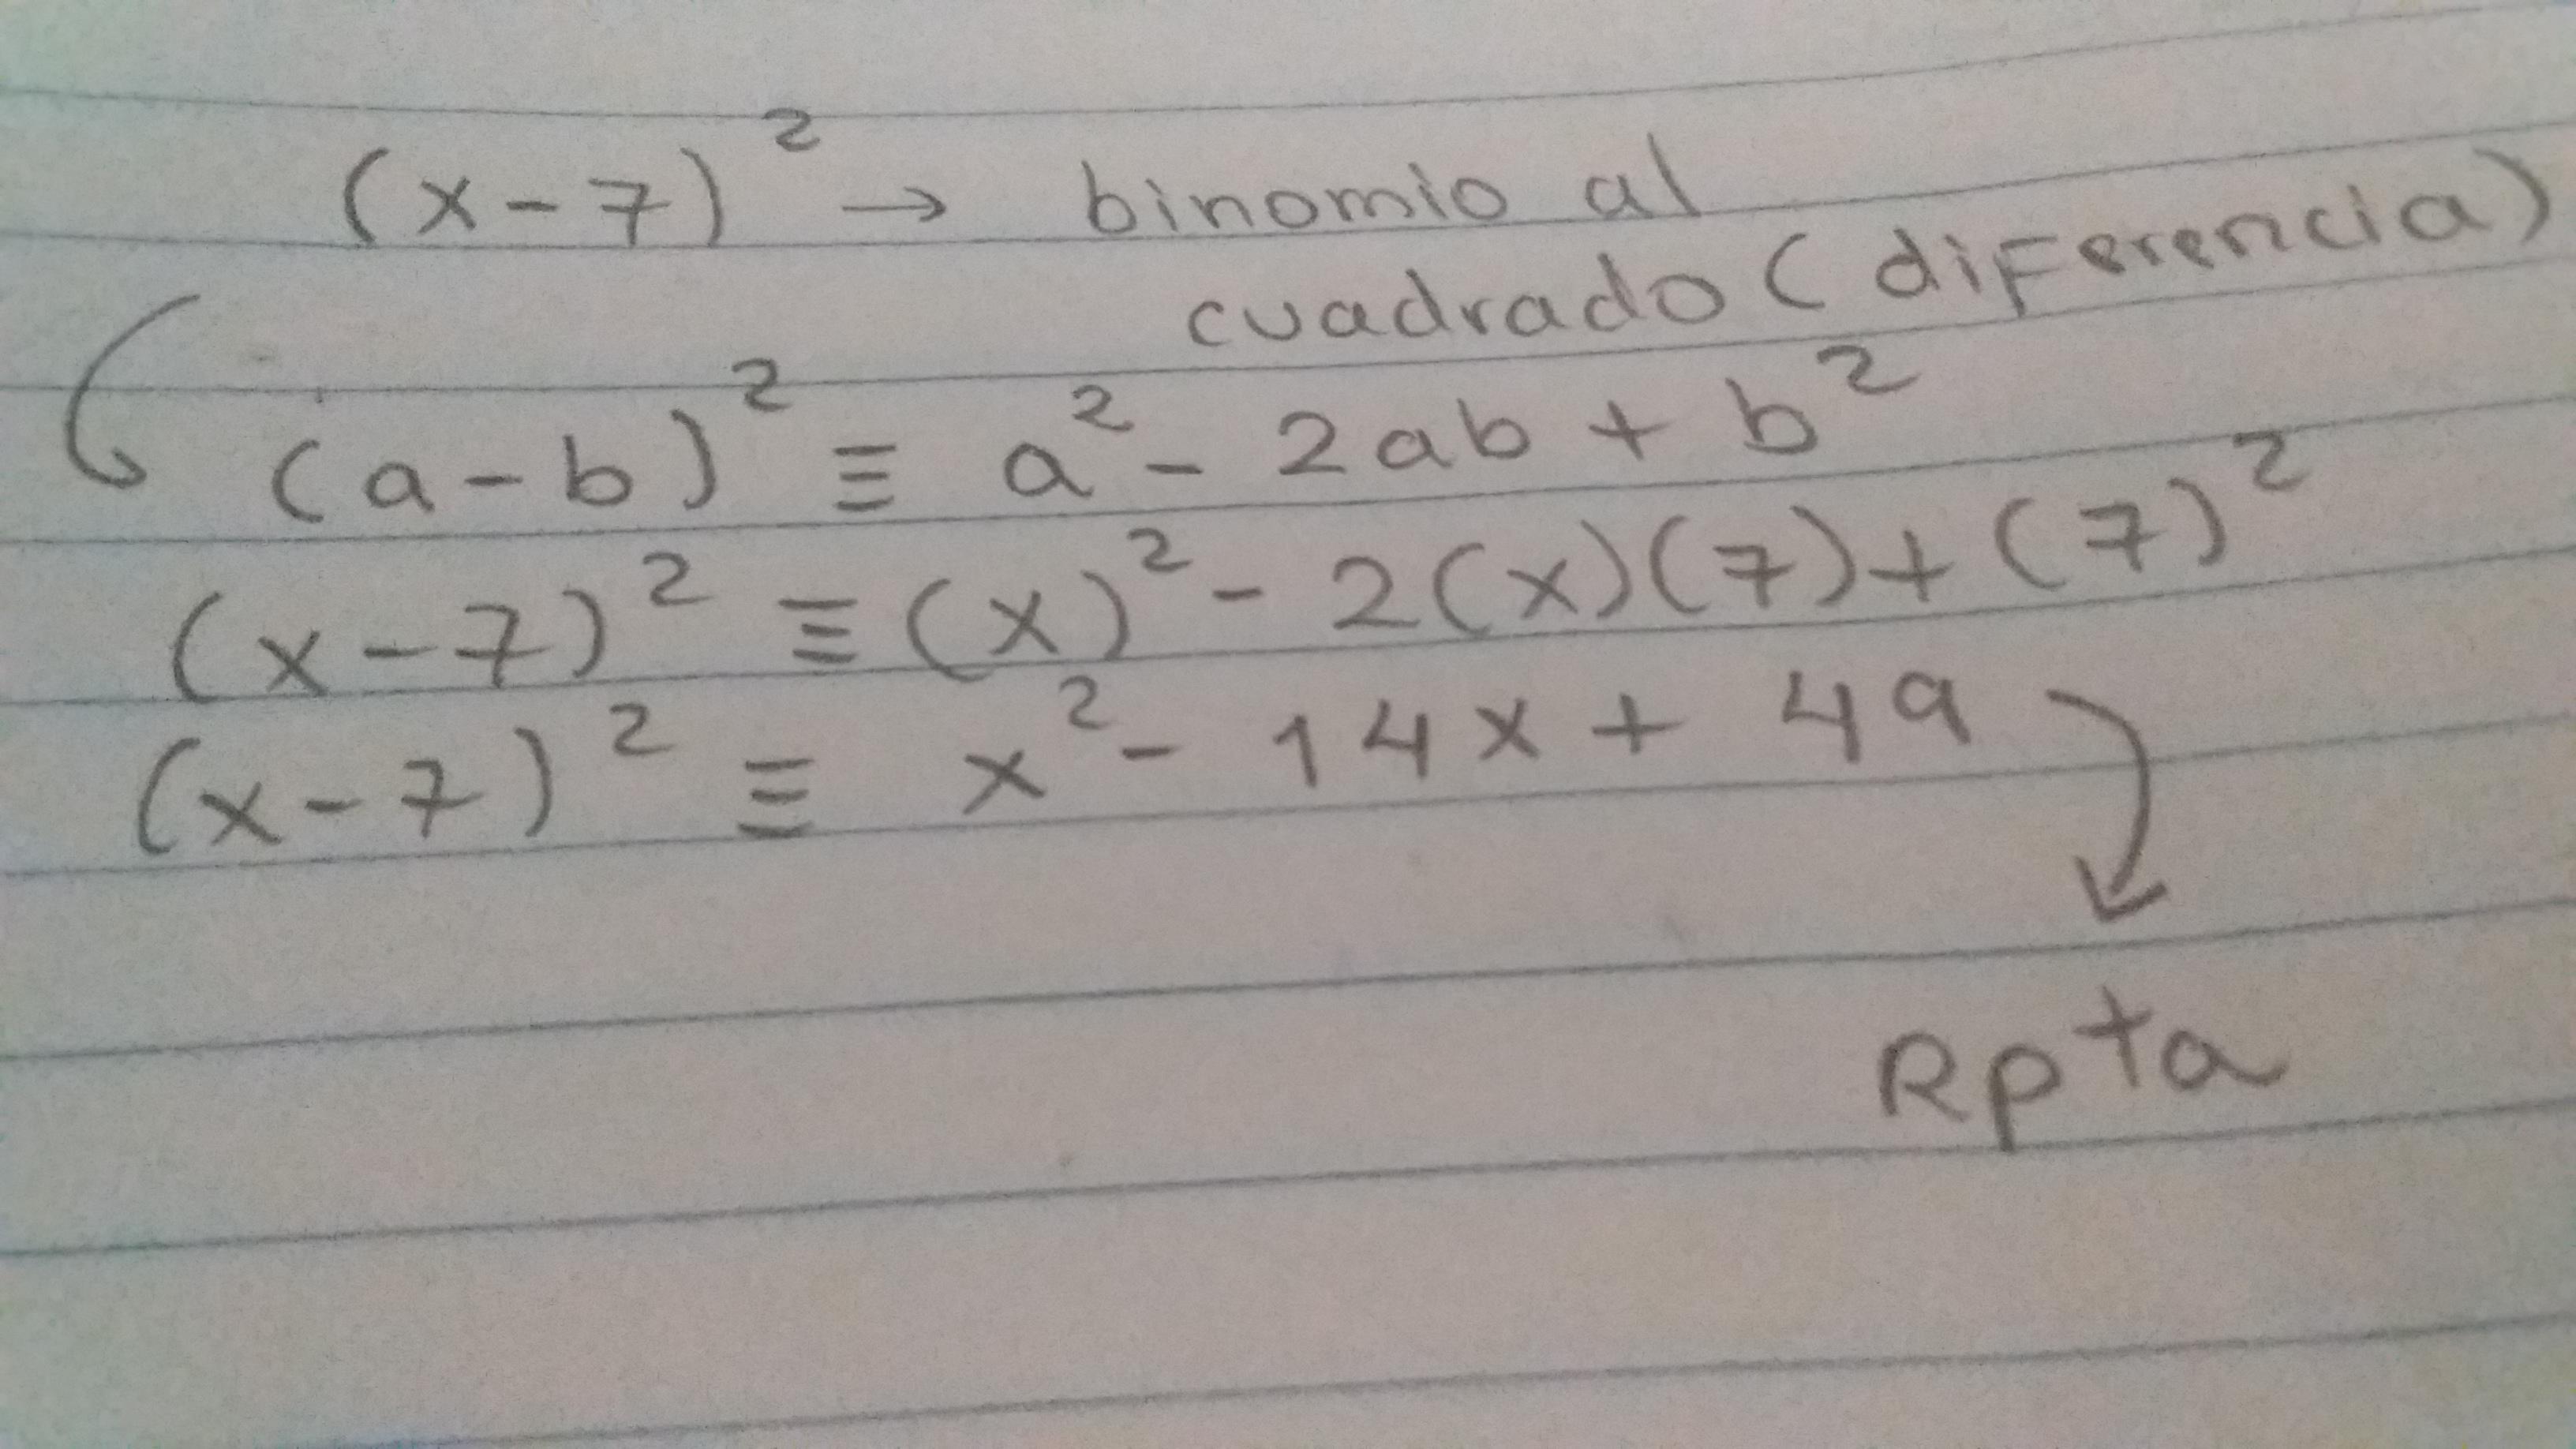 (x-7)² → binomio al
cuadrado (diferencia)
(a-b)² ≡ a² - 2ab + b²
(x-7)² ≡ (x)² - 2(x)(7) + (7)²
(x-7)² ≡ x² - 14x + 49
Rpta